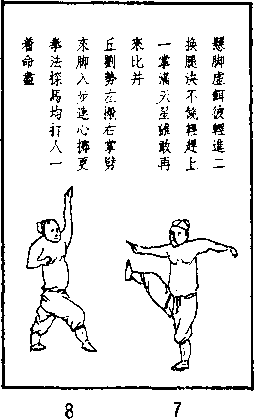 懸脚虛餌彼輕進二
換腿決不饒輕趕上
一掌滿天星誰敢再
來比并
丘劉勢左搬右掌劈
來脚入步連心挪更
拳法探馬均打人一
着命盡
8 7